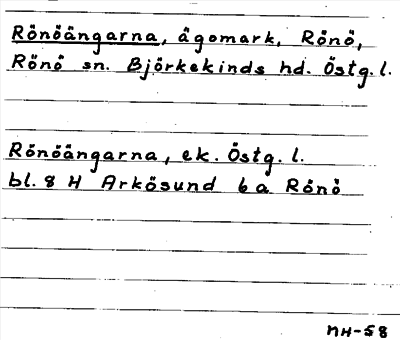 Rönöängarna, ägomark, Rönö,
Rönö sn. Björkekinds hd. Östg. l.
Rönöängarna, ek. Östg. l.
bl. 8 H Arkösund 6 a Rönö
MH-58